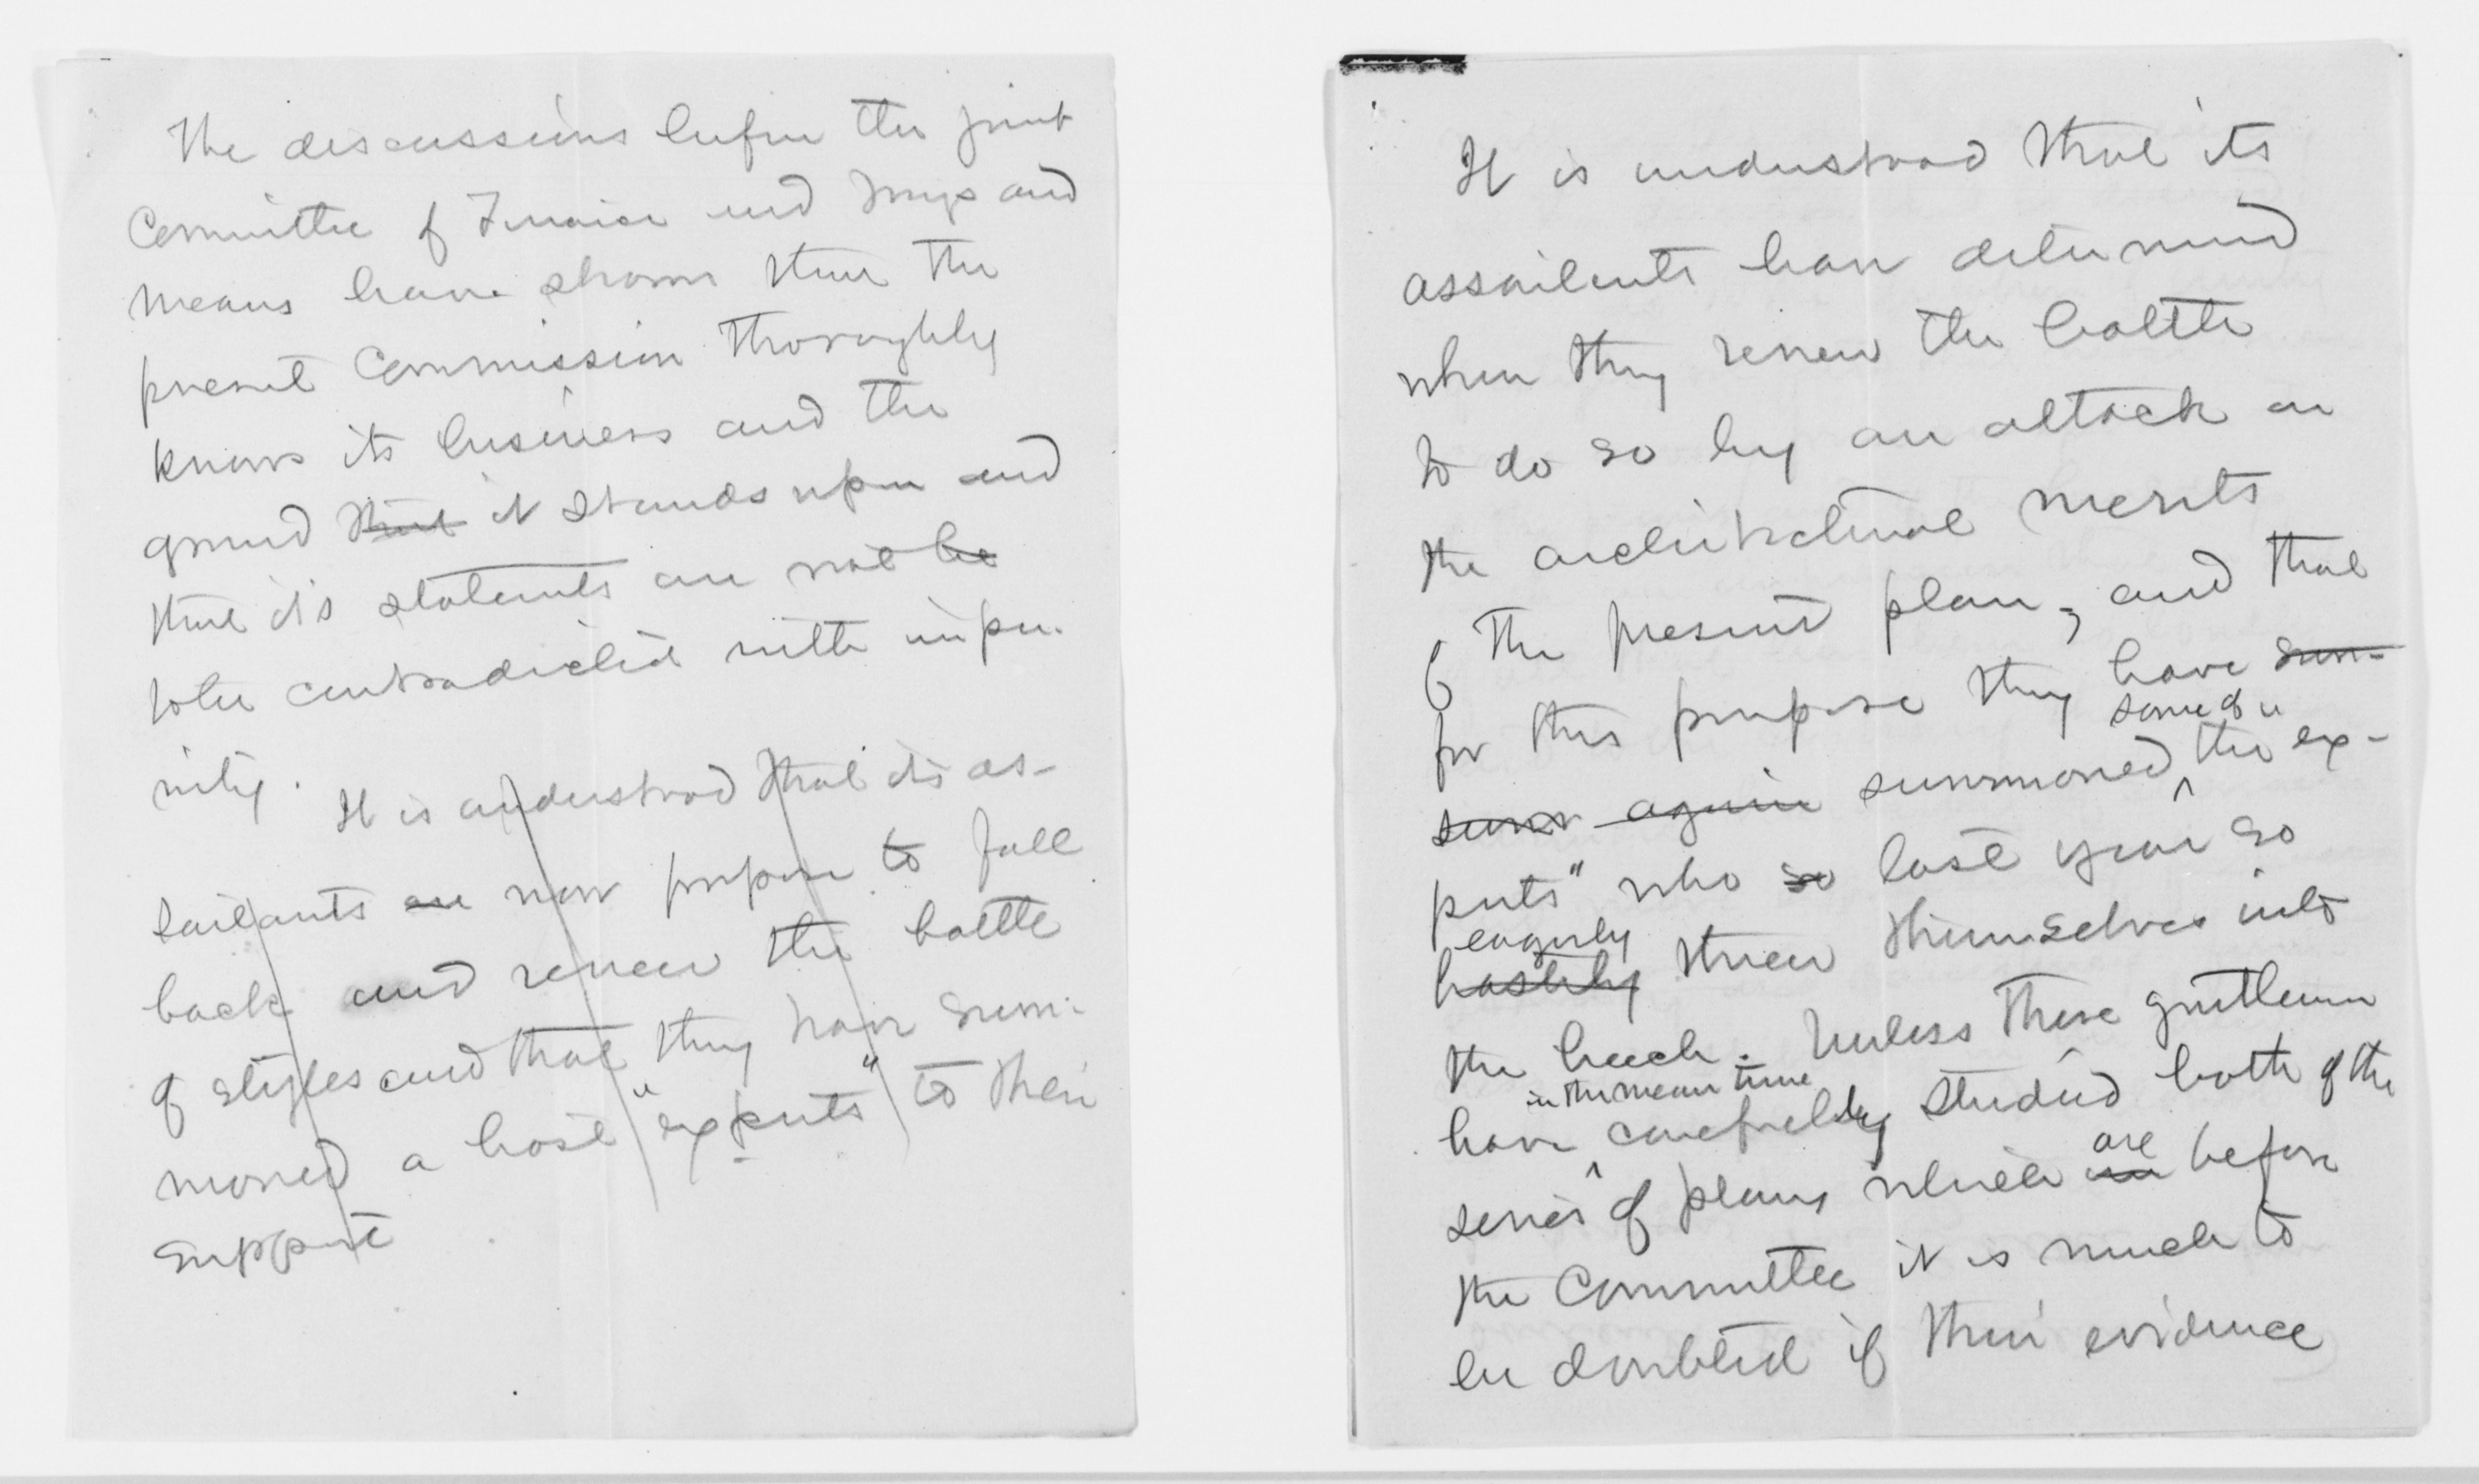 The discussions before the joint
Committee of Finance and Ways and
Means have shown that the
present Commission thoroughly
knows its business and the
ground that it stands upon and
that its statements are not be
to be contradicted with impu-
nity.
It is understood that its as-
sailants are now propose to fall
back and renew the battle
of styles and that they have sum-
moned a host "experts" to their
support
It is understood that its
assailents have determined
when they renew the battle
to do so by an attack on
the architectural merits
of the present plan, and that
for this purpose they have sum-
some of
summ again summoned the ex-
perts" who so last year so
eagerly
hastily threw themselves into
the breech. Unless these gentlemen
in the mean time
have carefully studied both of the
are
series of plans which before
the Committee it is much to
be doubted if their evidence